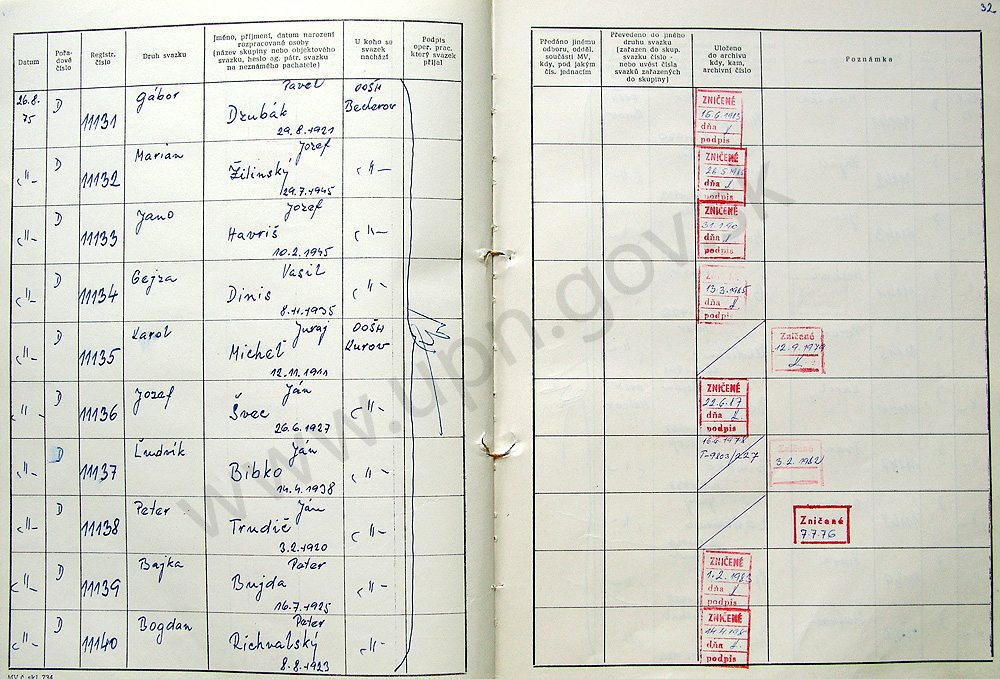 32.
Datum
Pořa-
dové
číslo
Registr.
číslo
Druh svazku
Jméno, příjmení, datum narození
rozpracované osoby
(název skupiny nebo objektového
svazku, heslo ag. pátr. svazku
na neznámého pachatele)
U koho se
svazek
nachází
Podpis
oper. prac.
který svazek
přijal
Předáno jinému
odboru, odděl.
součásti MV,
kdy, pod jakým
čís. jednacím
Převedeno do jiného
druhu svazku
(zařazen do skup.
svazku číslo -
nebo uvést čísla
svazků zařazených
do skupiny)
Uloženo
do archivu
kdy, kam,
archivní číslo
Poznámka
26.8.
75
D
11131
Gábor
Pavel
Dzubák
29.8.1921
OOŠH
Becherov
ZNIČENÉ
dňa
podpis
-"-
D
11132
Marián
Jozef
Žilinský
29.7.1945
-"-
ZNIČENÉ
dňa
podpis
-"-
D
11133
Jano
Jozef
Havriš
10.2.1945
-"-
ZNIČENÉ
dňa
podpis
-"-
D
11134
Gejza
Vasil
Dinis
8.11.1935
-"-
ZNIČENÉ
13.3.1985
dňa
podpis
-"-
D
11135
Karol
Juraj
Michel
12.11.1911
OOŠH
Kurov
Zničené
-"-
D
11136
Jozef
Ján
Švec
26.6.1927
-"-
ZNIČENÉ
22.6.87
dňa
podpis
-"-
D
11137
Ľudvik
Ján
Bibko
14.4.1938
-"-
16.6.1978
Zničené
3.2.1982
-"-
D
11138
Peter
Ján
Trudič
3.2.1920
-"-
Zničené
7.7.76
-"-
D
11139
Bajka
Peter
Bujda
16.7.1925
-"-
ZNIČENÉ
1.2.1983
dňa
podpis
-"-
D
11140
Bogdan
Peter
Richvalský
8.8.1923
-"-
ZNIČENÉ
dňa
podpis
MV č. skl. 734
www.upn.gov.sk